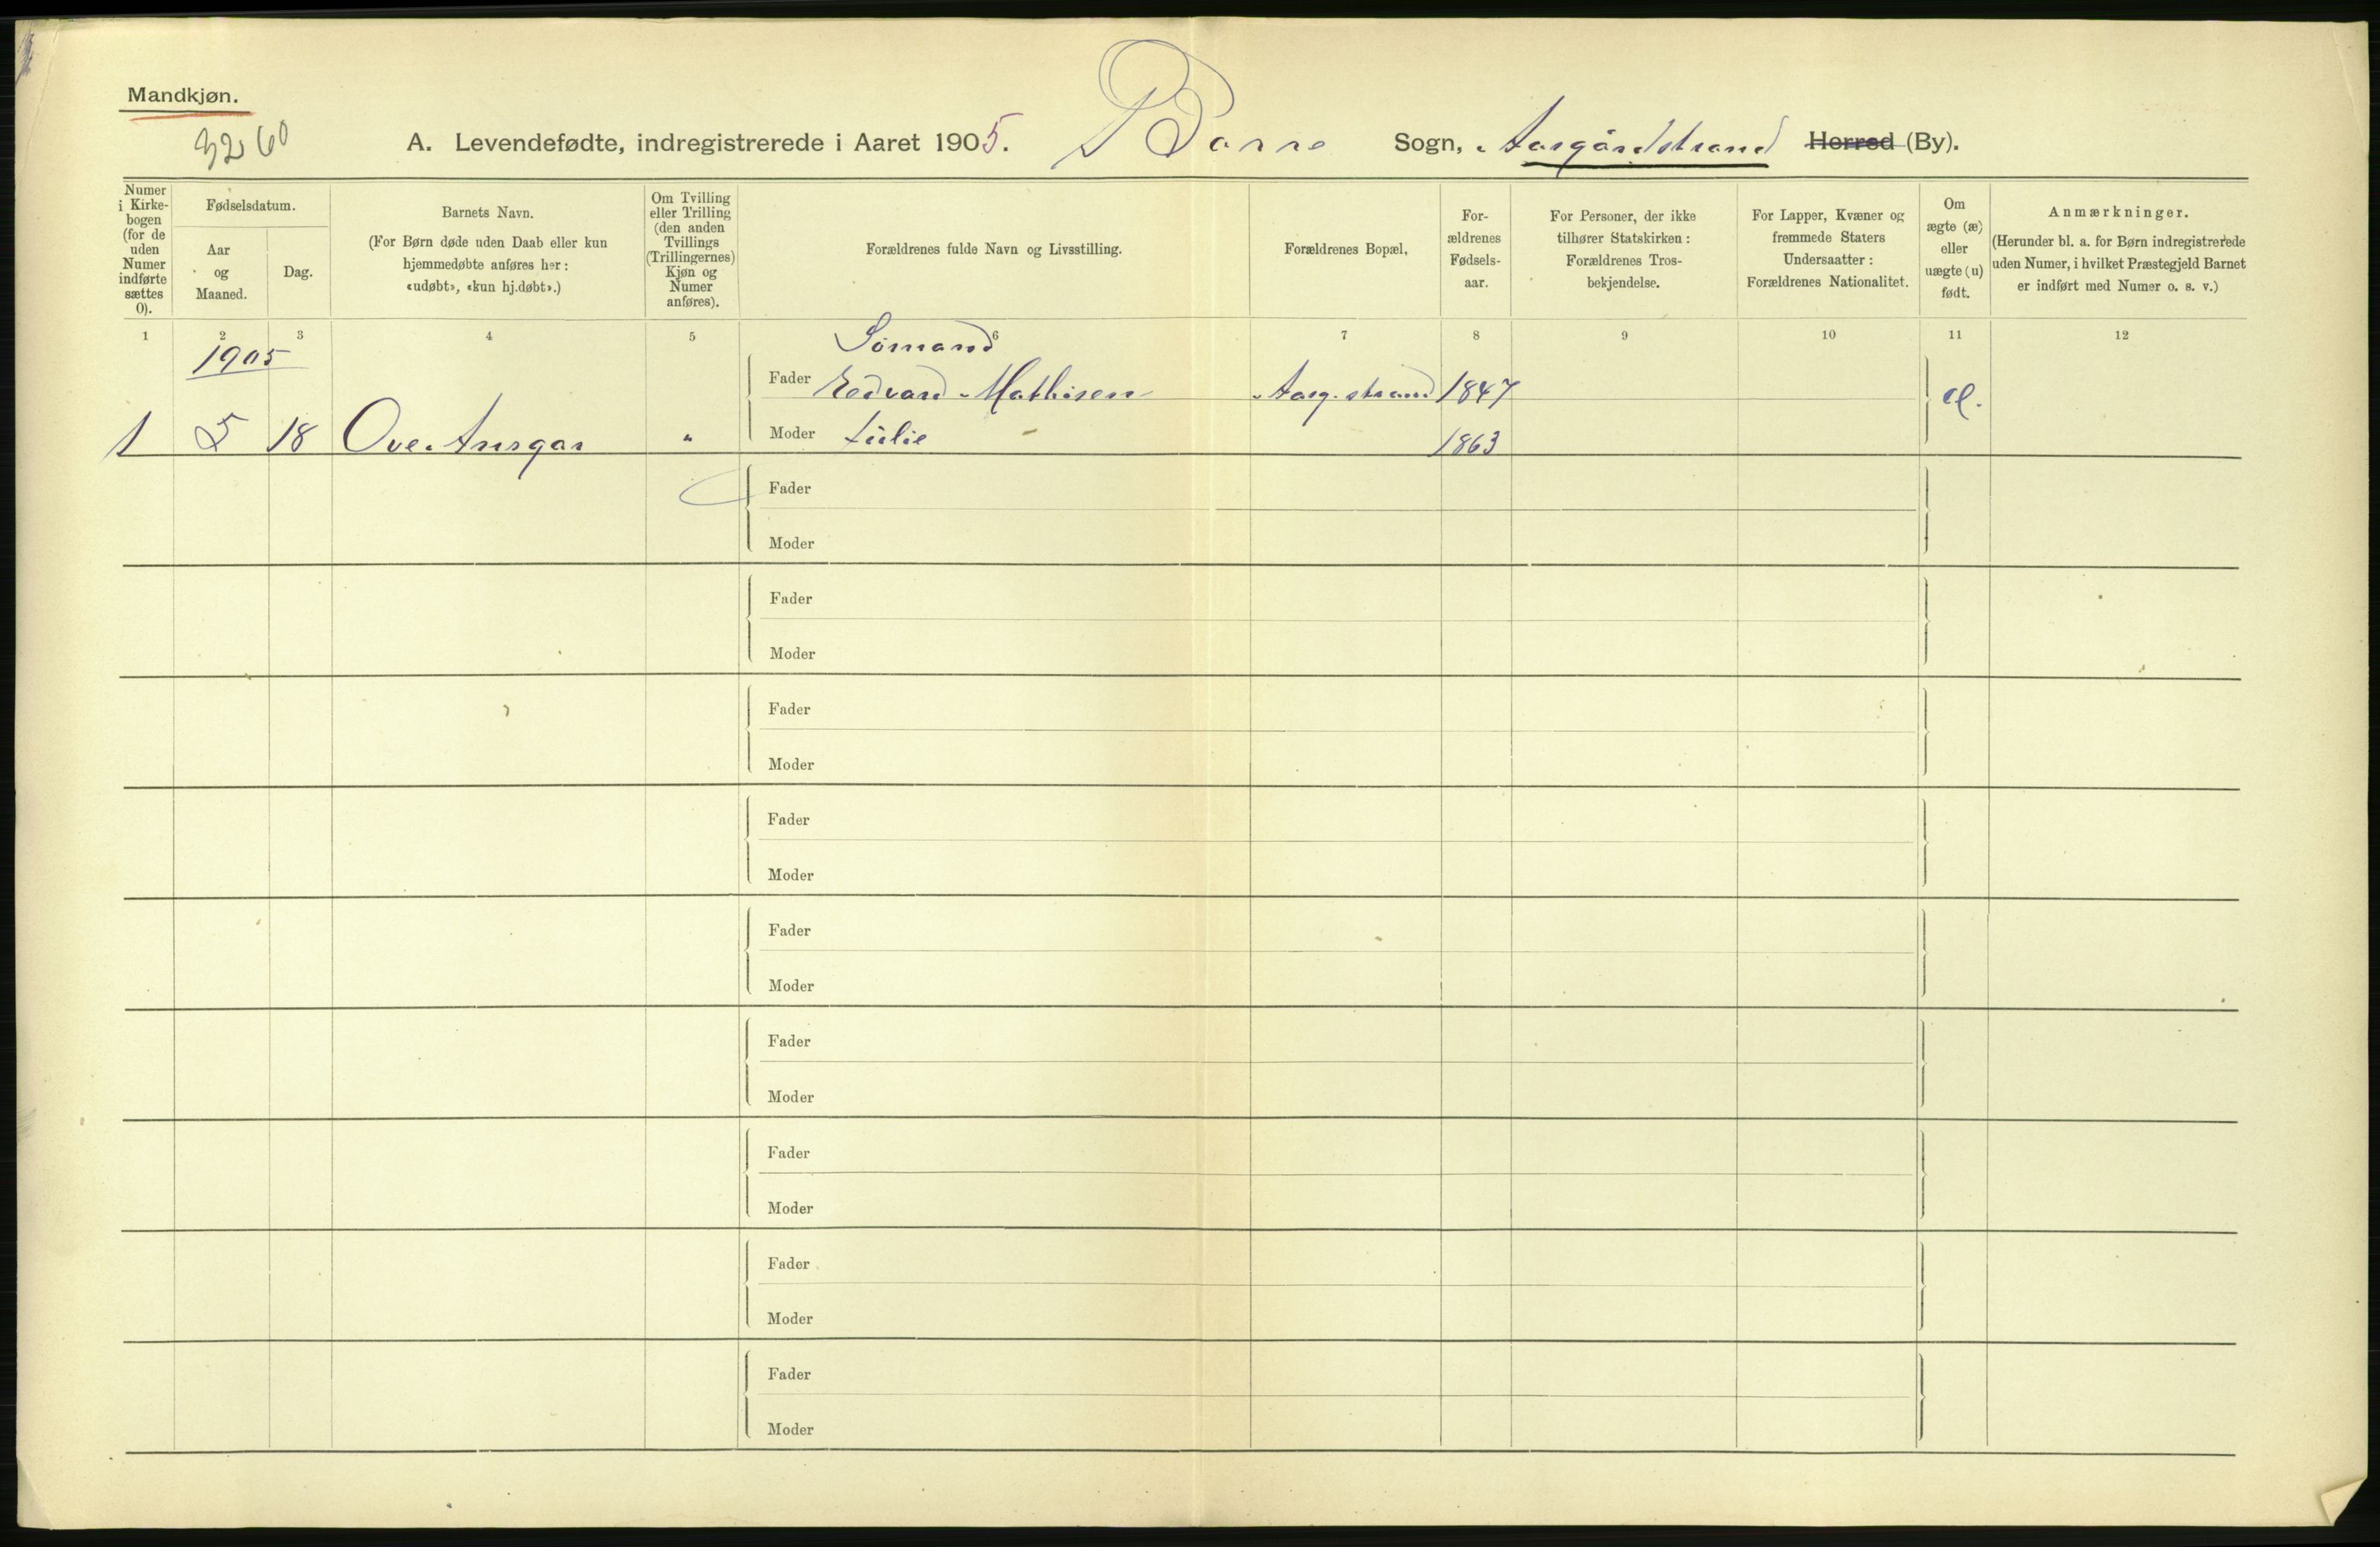 Mandkjøn.
3260
A. Levendefødte, indregistrerede i Aaret 1905. Borre Sogn, Aasgårdstrand Herred (By).
Numer
i Kirke-
bogen
(for de
uden
Numer
indførte
sættes
0).
Fødselsdatum.
Aar
og
Maaned.
Dag.
Barnets Navn.
(For Børn døde uden Daab eller kun
hjemmedøbte anføres her:
«udøbt», «kun hj.døbt».)
Om Tvilling
eller Trilling
(den anden
Tvillings
(Trillingernes)
Kjøn og
Numer
anføres).
Forældrenes fulde Navn og Livsstilling.
Forældrenes Bopæl,
For-
ældrenes
Fødsels-
aar.
For Personer, der ikke
tilhører Statskirken:
Forældrenes Tros-
bekjendelse.
For Lapper, Kvæner og
fremmede Staters
Undersaatter:
Forældrenes Nationalitet.
Om
ægte (æ)
eller
uægte (u)
født.
Anmærkninger.
(Herunder bl. a. for Børn indregistrerede
uden Numer, i hvilket Præstegjeld Barnet
er indført med Numer o. s. v.)
1 2 3 4 5 6 7 8 9 10 11 12
1905 Sömand
Fader Edvard Mathisen Aasg.strand 1847 æ.
1 5 18 Ove Ansgar " Moder Julie - 1863
Fader
Moder
Fader
Moder
Fader
Moder
Fader
Moder
Fader
Moder
Fader
Moder
Fader
Moder
Fader
Moder
Fader
Moder